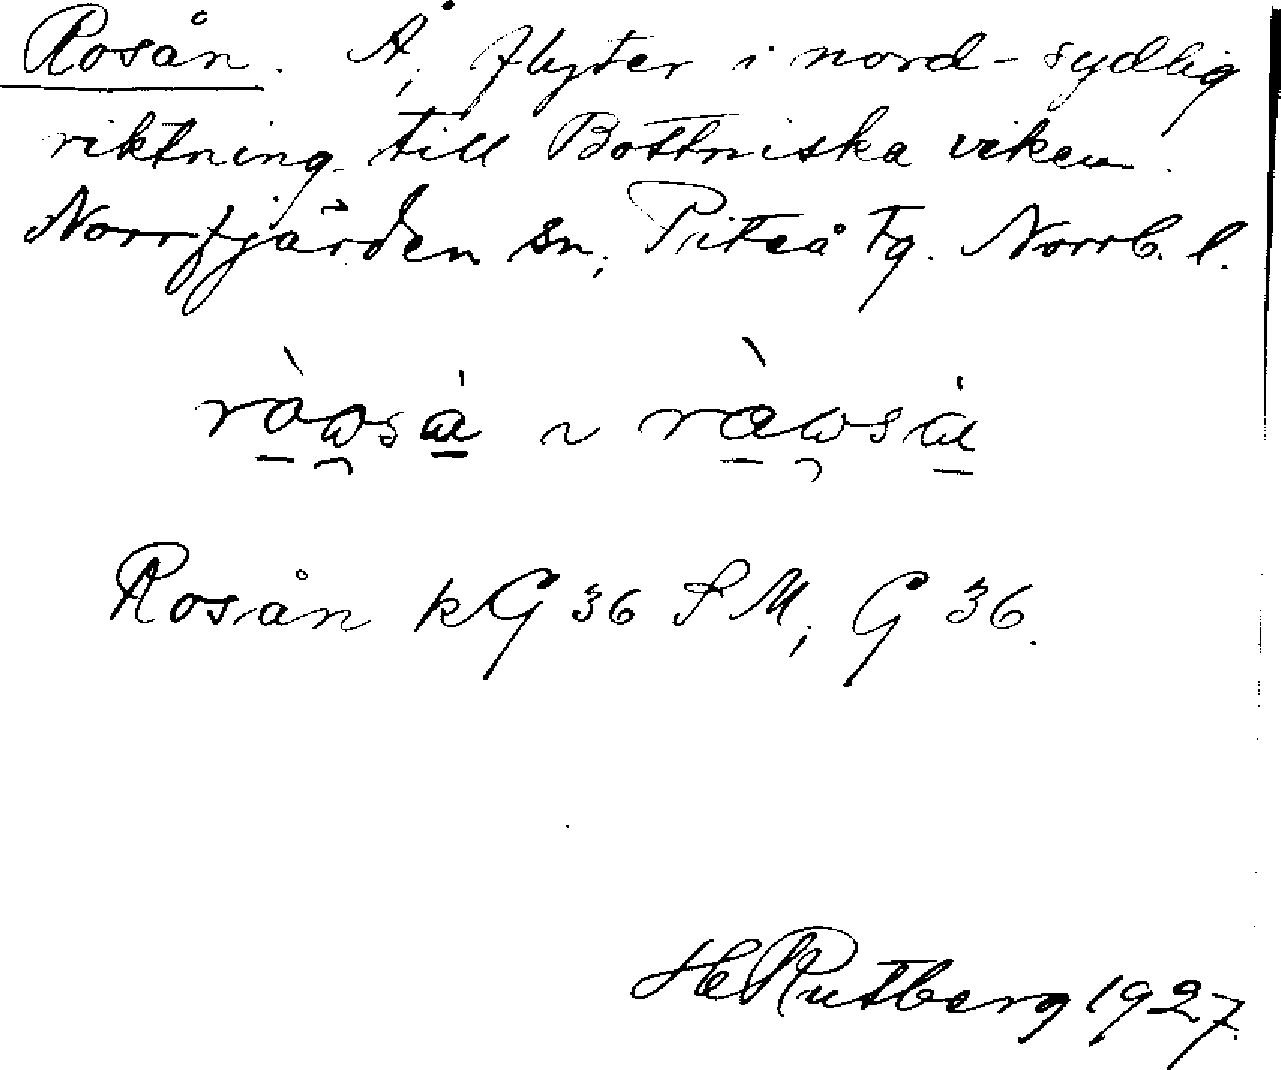 Rosån. Å, flyter i nord-sydlig
riktning till Bottniska viken.
Norrfjärden sn, Piteå tg. Norrb. l.
ràωså ~ ràωså
Rosån kG 36 SM, G 36.
H Rutberg 1927.